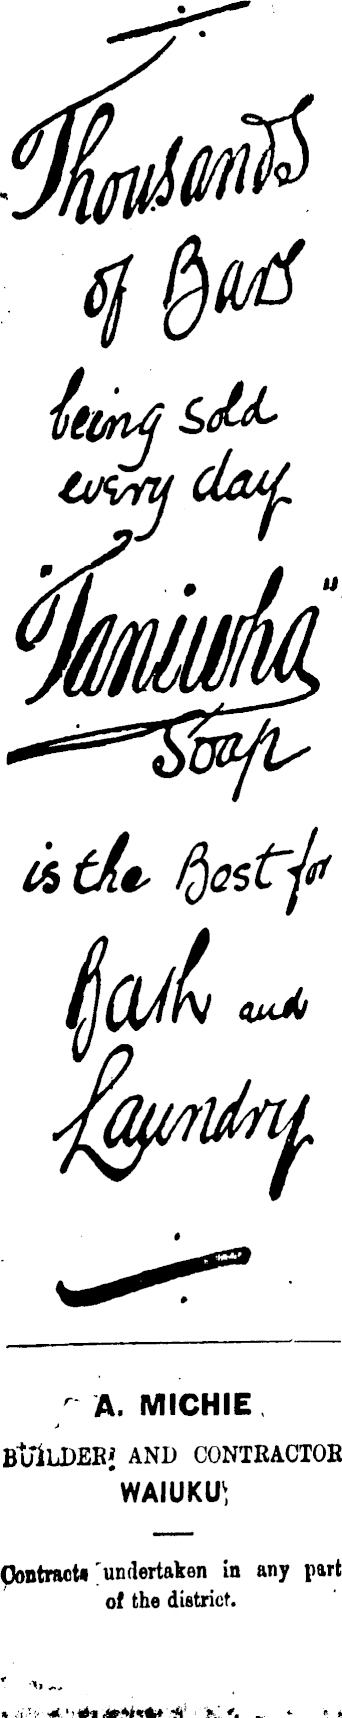 Thousands
of Bars
being sold
every day
"Taniwha"
Soap
is the Best for
Bath and
Laundry
A. MICHIE
BUILDER AND CONTRACTOR
WAIUKU
Contracts undertaken in any part
of the district.